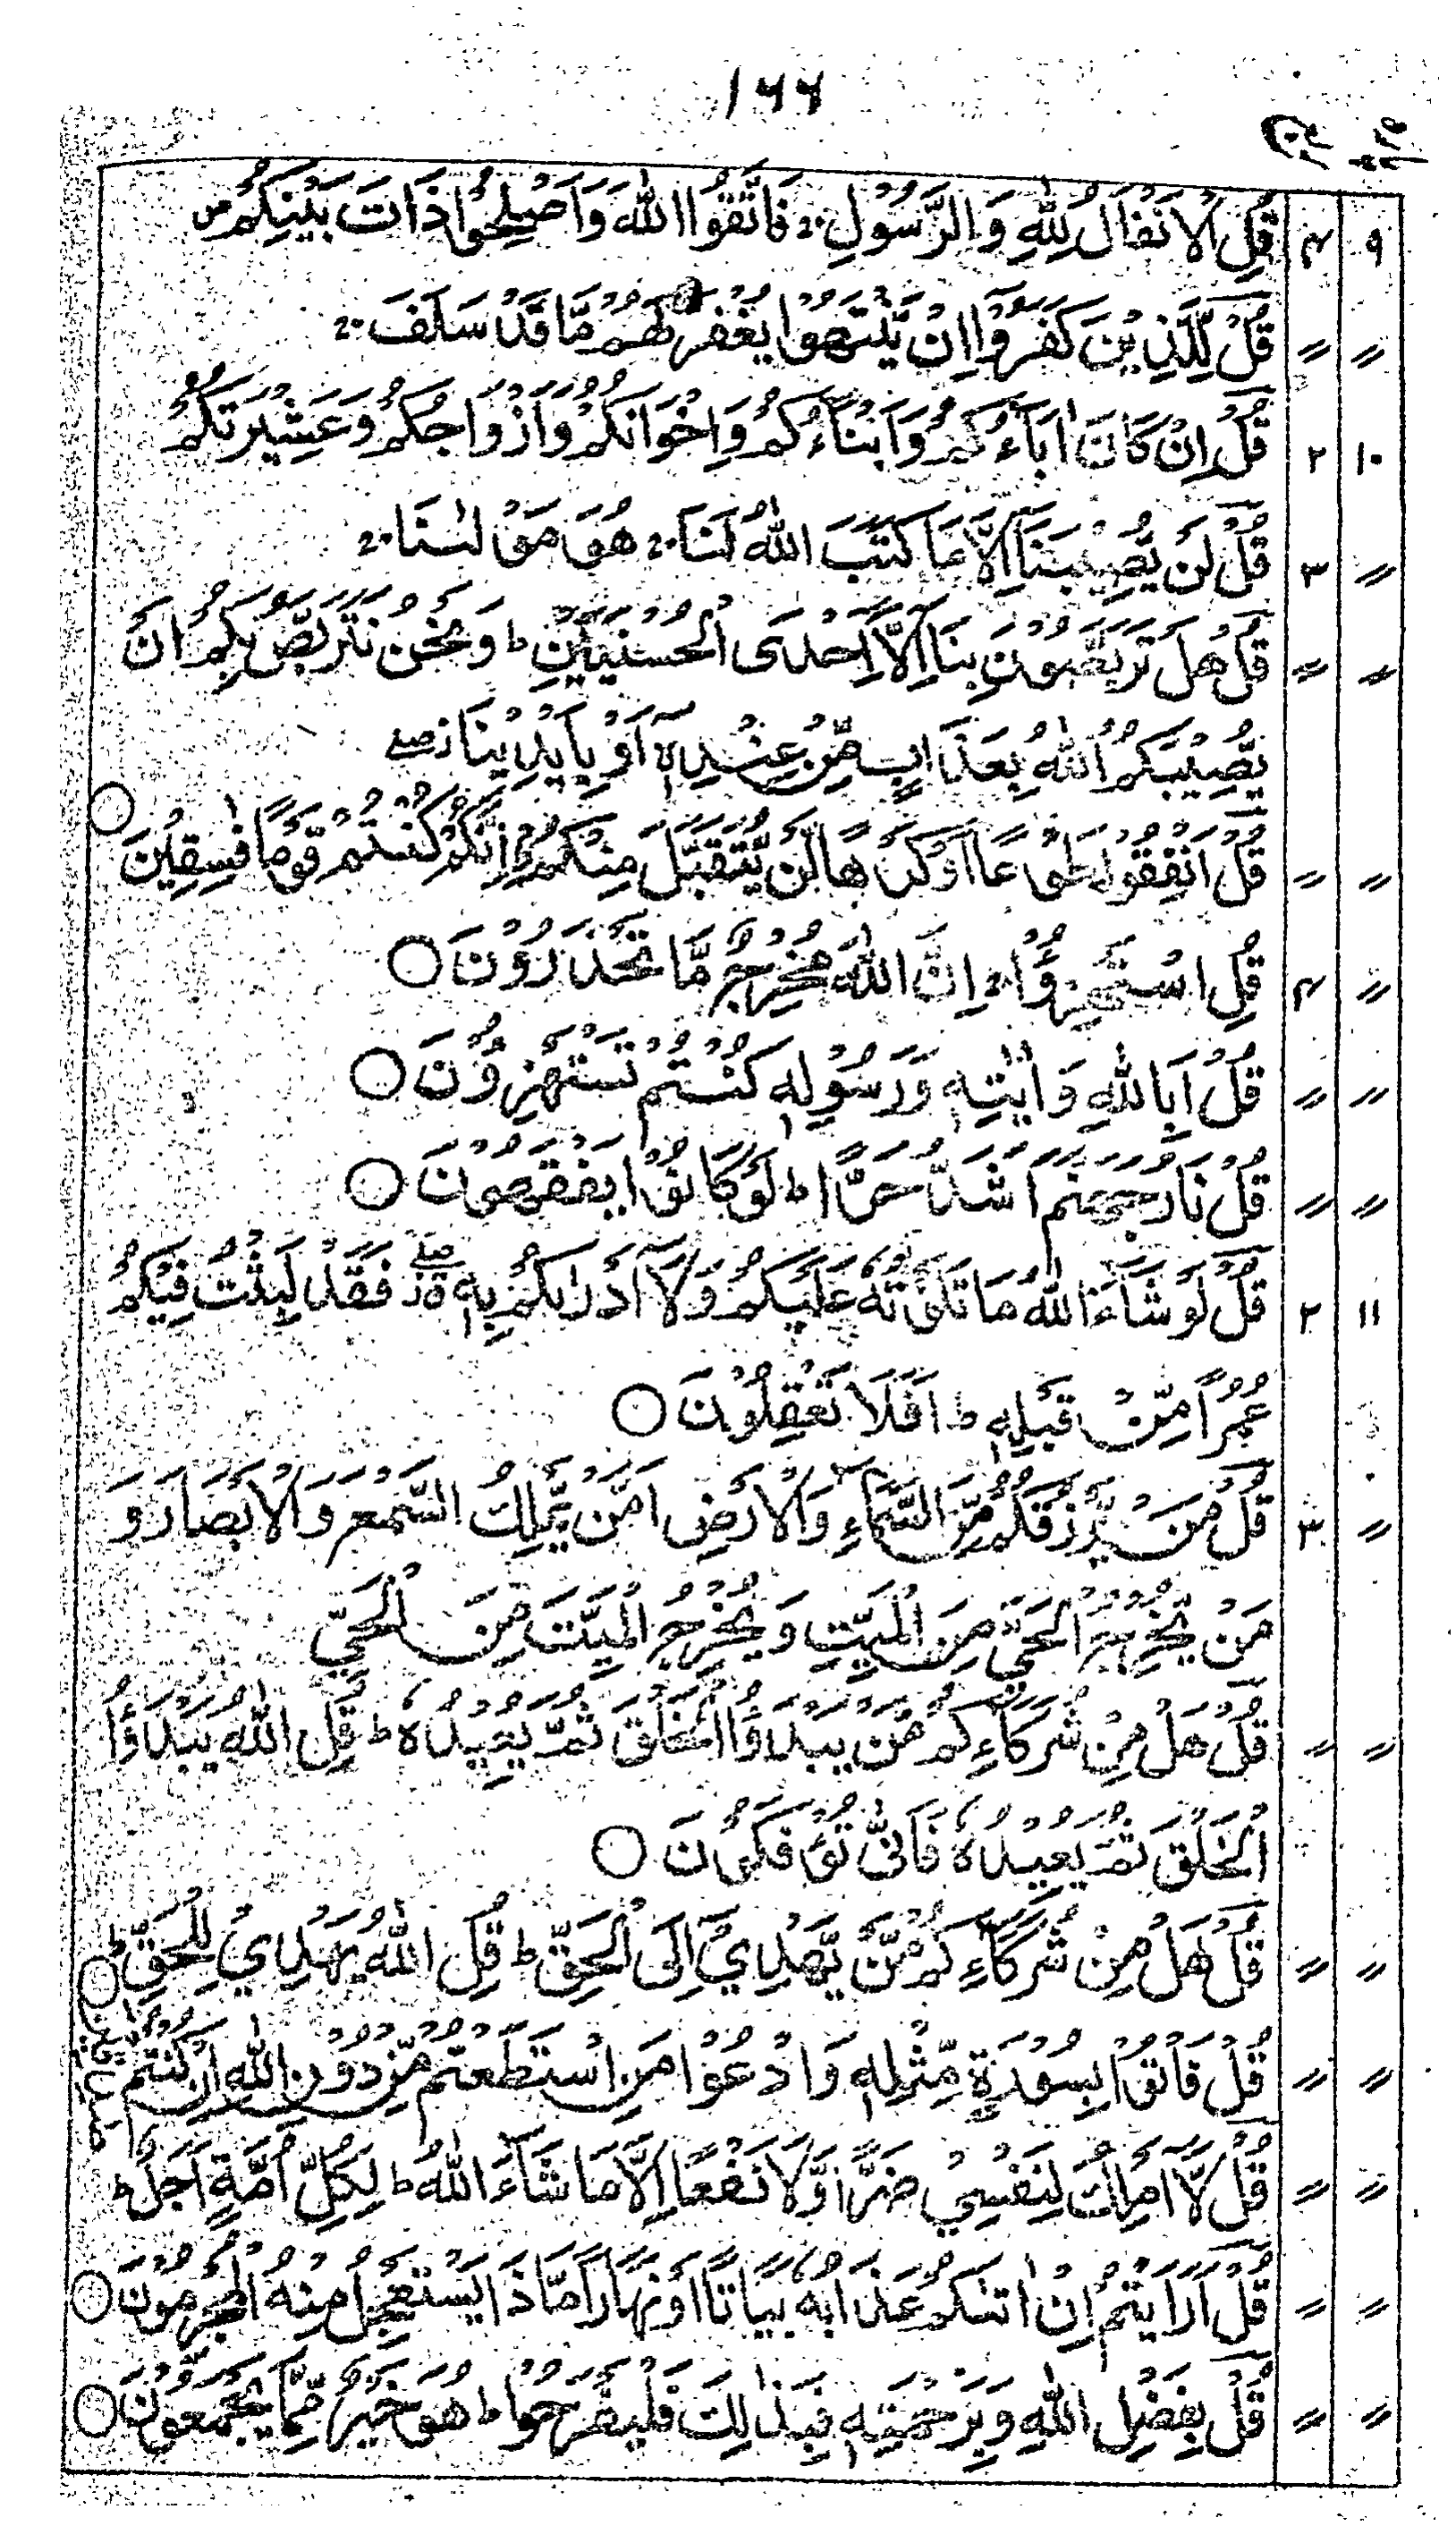 ۱۶۶
۹ ۴ قُلِ الْاَنْفَالُ لِلّٰهِ وَالرَّسُوْلِ ۚ فَاتَّقُوا اللّٰهَ وَاَصْلِحُوْا ذَاتَ بَيْنِكُمْ ص
〃 〃 قُلْ لِّلَّذِيْنَ كَفَرُوْٓا اِنْ يَّنْتَهُوْا يُغْفَرْ لَهُمْ مَّا قَدْ سَلَفَ ۚ
۱۰ ۲ قُلْ اِنْ كَانَ اٰبَآءُكُمْ وَاَبْنَآءُكُمْ وَاِخْوَانُكُمْ وَاَزْوَاجُكُمْ وَعَشِيْرَتُكُمْ
〃 ۳ قُلْ لَنْ يُّصِيْبَنَآ اِلَّا مَا كَتَبَ اللّٰهُ لَنَا ۚ هُوَ مَوْلٰىنَا ۚ
〃 〃 قُلْ هَلْ تَرَبَّصُوْنَ بِنَآ اِلَّآ اِحْدَى الْحُسْنَيَيْنِ ؕ وَنَحْنُ نَتَرَبَّصُ بِكُمْ اَنْ
يُّصِيْبَكُمُ اللّٰهُ بِعَذَابٍ مِّنْ عِنْدِهٖٓ اَوْ بِاَيْدِيْنَا ز صلے
〃 〃 قُلْ اَنْفِقُوْا طَوْعًا اَوْ كَرْهًا لَّنْ يُّتَقَبَّلَ مِنْكُمْ ؕ اِنَّكُمْ كُنْتُمْ قَوْمًا فٰسِقِيْنَ ○
〃 ۴ قُلِ اسْتَهْزِءُوْا ۚ اِنَّ اللّٰهَ مُخْرِجٌ مَّا تَحْذَرُوْنَ ○
〃 〃 قُلْ اَبِاللّٰهِ وَاٰيٰتِهٖ وَرَسُوْلِهٖ كُنْتُمْ تَسْتَهْزِءُوْنَ ○
〃 〃 قُلْ نَارُ جَهَنَّمَ اَشَدُّ حَرًّا ؕ لَوْ كَانُوْا يَفْقَهُوْنَ ○
۱۱ ۲ قُلْ لَّوْ شَآءَ اللّٰهُ مَا تَلَوْتُهٗ عَلَيْكُمْ وَلَآ اَدْرٰىكُمْ بِهٖ ز صلے فَقَدْ لَبِثْتُ فِيْكُمْ
عُمُرًا مِّنْ قَبْلِهٖ ؕ اَفَلَا تَعْقِلُوْنَ ○
〃 ۳ قُلْ مَنْ يَّرْزُقُكُمْ مِّنَ السَّمَآءِ وَالْاَرْضِ اَمَّنْ يَّمْلِكُ السَّمْعَ وَالْاَبْصَارَ وَ
مَنْ يُّخْرِجُ الْحَيَّ مِنَ الْمَيِّتِ وَيُخْرِجُ الْمَيِّتَ مِنَ الْحَيِّ
〃 〃 قُلْ هَلْ مِنْ شُرَكَآءِكُمْ مَّنْ يَّبْدَؤُا الْخَلْقَ ثُمَّ يُعِيْدُهٗ ؕ قُلِ اللّٰهُ يَبْدَؤُا
الْخَلْقَ ثُمَّ يُعِيْدُهٗ فَاَنّٰى تُؤْفَكُوْنَ ○
〃 〃 قُلْ هَلْ مِنْ شُرَكَآءِكُمْ مَّنْ يَّهْدِيْٓ اِلَى الْحَقِّ ؕ قُلِ اللّٰهُ يَهْدِيْ لِلْحَقِّ ؕ
〃 〃 قُلْ فَاْتُوْا بِسُوْرَةٍ مِّثْلِهٖ وَادْعُوْا مَنِ اسْتَطَعْتُمْ مِّنْ دُوْنِ اللّٰهِ اِنْ كُنْتُمْ ○
〃 〃 قُلْ لَّآ اَمْلِكُ لِنَفْسِيْ ضَرًّا وَّلَا نَفْعًا اِلَّا مَا شَآءَ اللّٰهُ ؕ لِكُلِّ اُمَّةٍ اَجَلٌ ؕ
〃 〃 قُلْ اَرَاَيْتُمْ اِنْ اَتٰىكُمْ عَذَابُهٗ بَيَاتًا اَوْ نَهَارًا مَّاذَا يَسْتَعْجِلُ مِنْهُ الْمُجْرِمُوْنَ ○
〃 〃 قُلْ بِفَضْلِ اللّٰهِ وَبِرَحْمَتِهٖ فَبِذَالِكَ فَلْيَفْرَحُوْا ؕ هُوَ خَيْرٌ مِّمَّا يَجْمَعُوْنَ ○